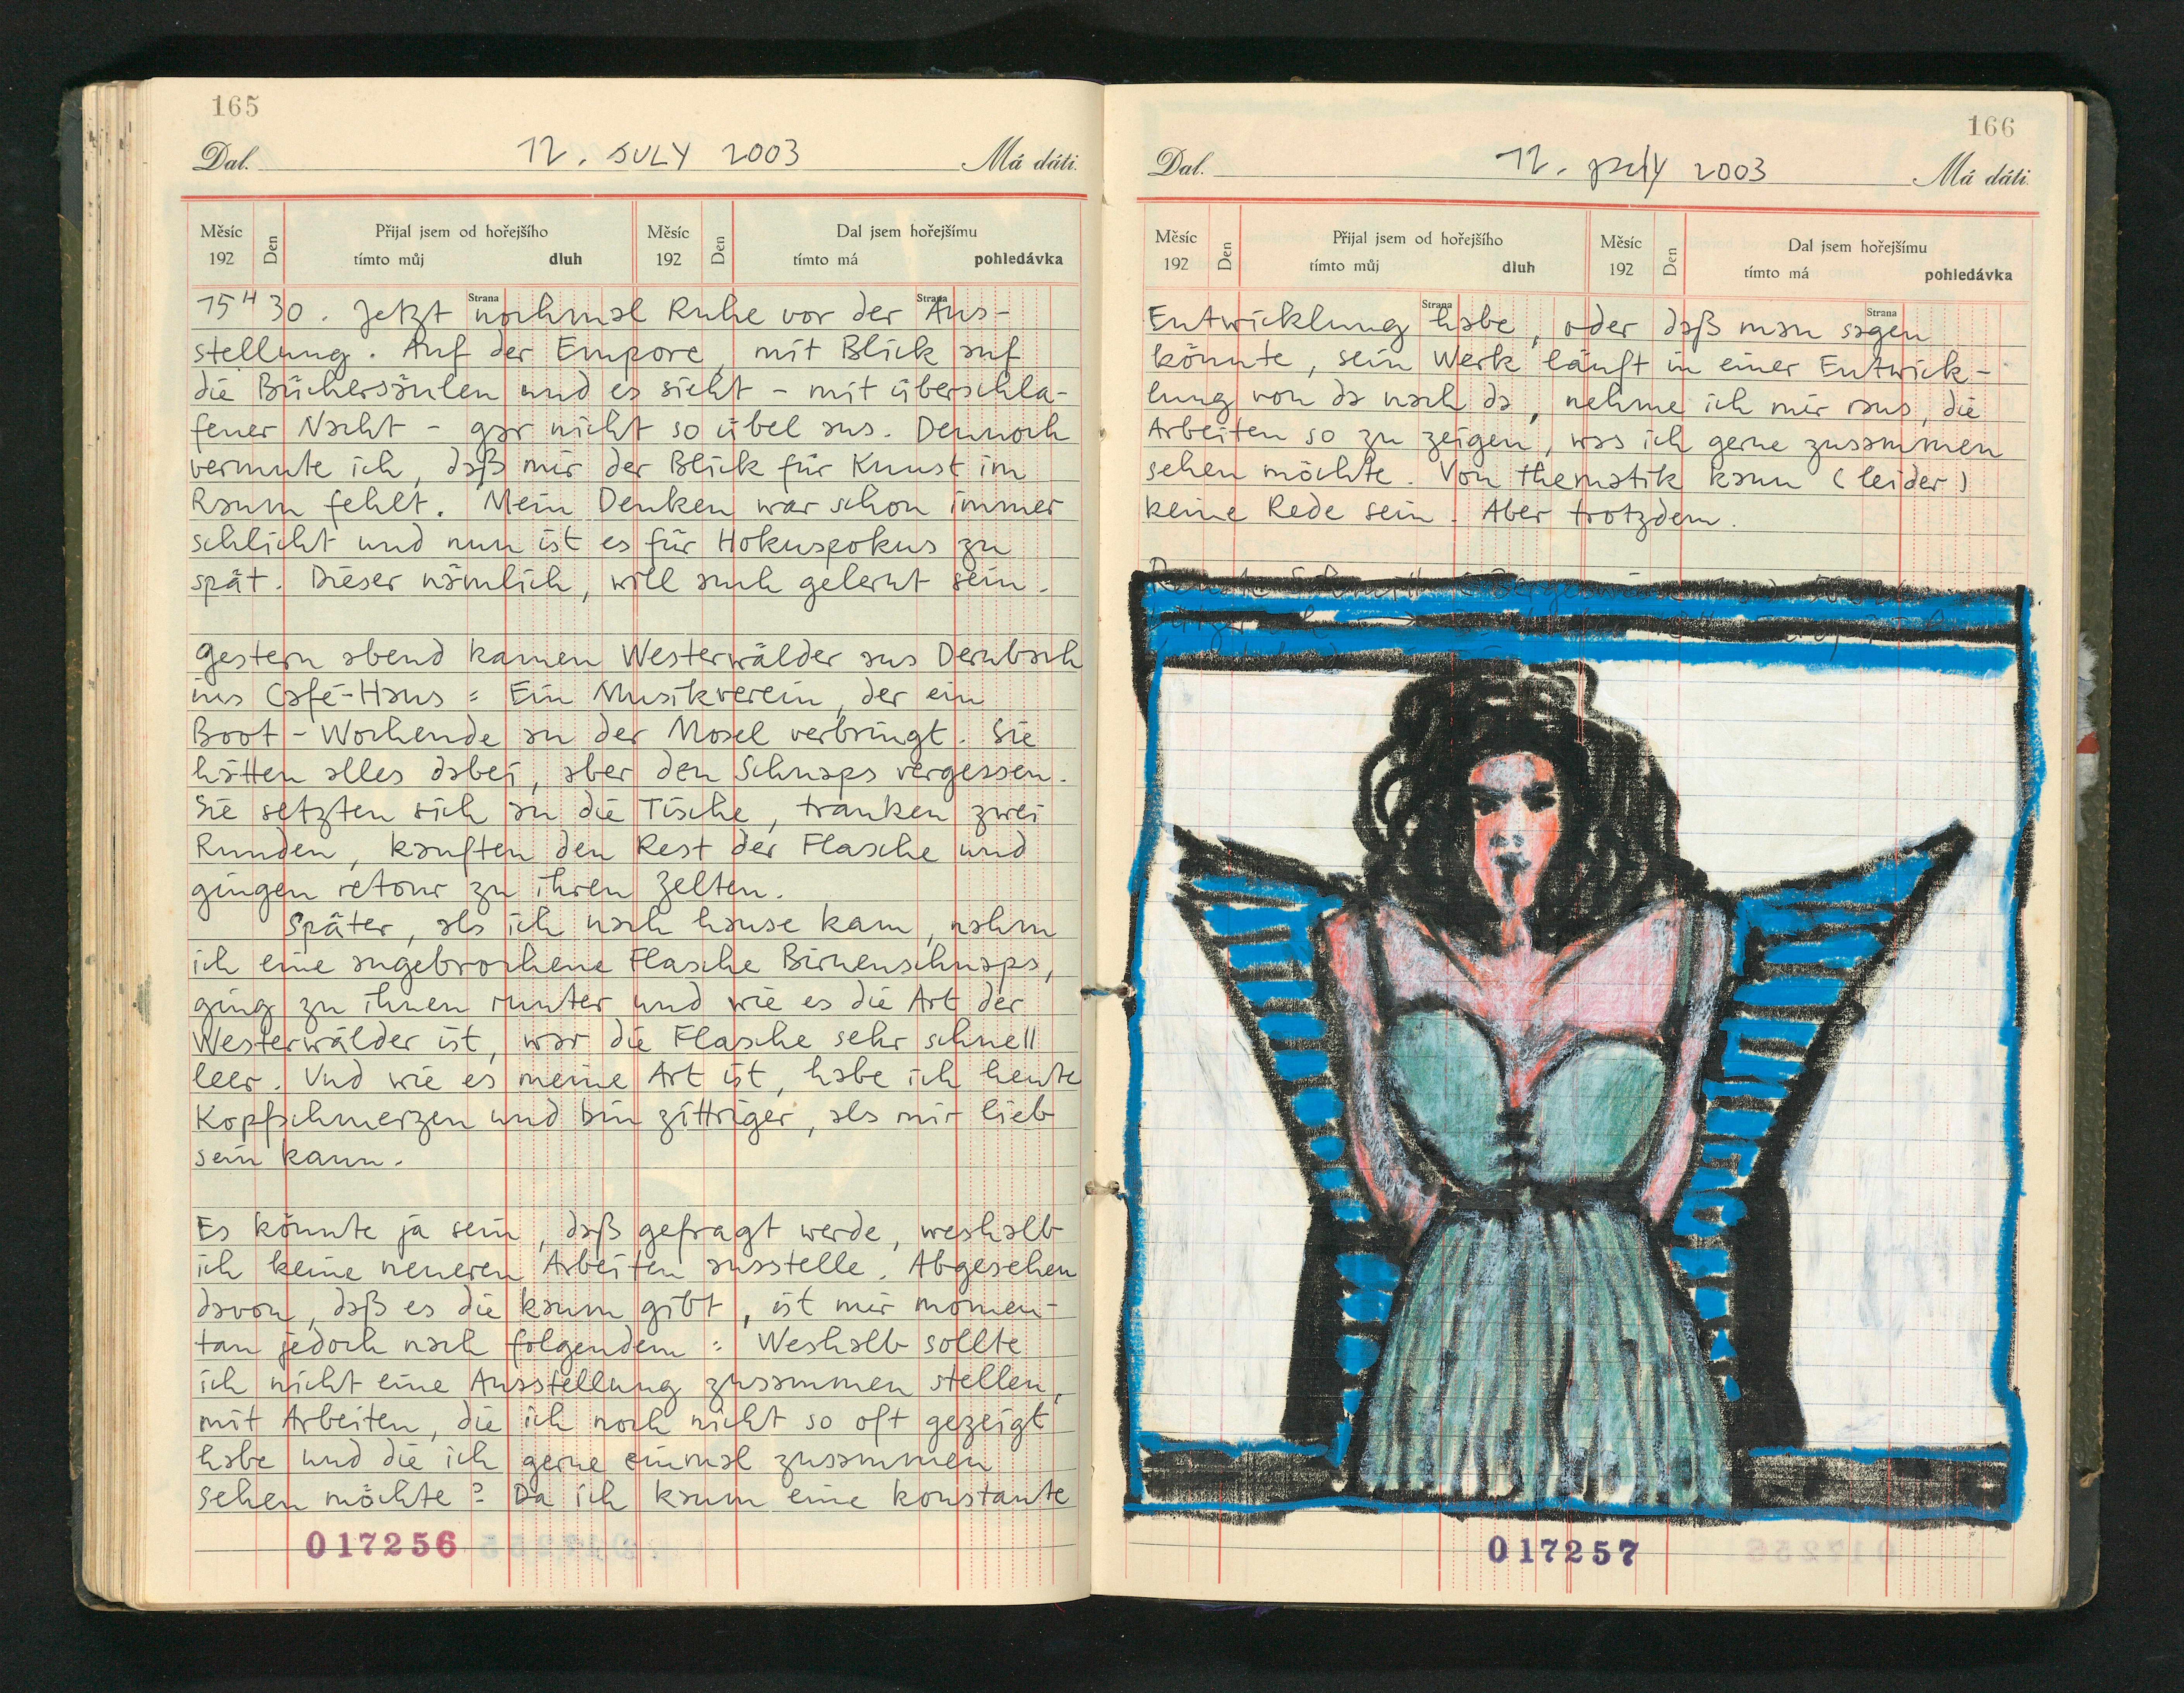 165
Dal. 12. JULY 2003 Má dáti.
Měsíc 192 Den Přijal jsem od hořejšího tímto můj dluh Měsíc 192 Den Dal jsem hořejšímu tímto má pohledávka
Strana Strana
15H30. Jetzt nochmal Ruhe vor der Aus-
stellung. Auf der Empore, mit Blick auf
die Büchersäulen und es sieht - mit überschla-
fener Nacht - gar nicht so übel aus. Dennoch
vermute ich, daß mir der Blick für Kunst im
Raum fehlt. Mein Denken war schon immer
schlicht und nun ist es für Hokuspokus zu
spät. Dieser nämlich, will auch gelernt sein.
Gestern abend kamen Westerwälder aus Dernbach
ins Café-Haus: Ein Musikverein, der ein
Boot-Wochende an der Mosel verbringt. Sie
hätten alles dabei, aber den Schnaps vergessen.
Sie setzten sich an die Tische, tranken zwei
Runden, kauften den Rest der Flasche und
gingen retour zu ihren Zelten.
Später, als ich nach hause kam, nahm
ich eine angebrochene Flasche Birnenschnaps,
ging zu ihnen runter und wie es die Art der
Westerwälder ist, war die Flasche sehr schnell
leer. Und wie es meine Art ist, habe ich heute
Kopfschmerzen und bin zittriger, als mir lieb
sein kann.
Es könnte ja sein, daß gefragt werde, weshalb
ich keine neueren Arbeiten ausstelle. Abgesehen
davon, daß es die kaum gibt, ist mir momen-
tan jedoch nach folgendem: Weshalb sollte
ich nicht eine Ausstellung zusammen stellen,
mit Arbeiten, die ich noch nicht so oft gezeigt
habe und die ich gerne einmal zusammen
sehen möchte? Da ich kaum eine konstante
017256
166
Dal. 12. July 2003 Má dáti.
Měsíc 192 Den Přijal jsem od hořejšího tímto můj dluh Měsíc 192 Den Dal jsem hořejšímu tímto má pohledávka
Strana Strana
Entwicklung habe, oder daß man sagen
könnte, sein Werk läuft in einer Entwick-
lung von da nach da, nehme ich mir raus, die
Arbeiten so zu zeigen, was ich gerne zusammen
sehen möchte. Von Thematik kann (leider)
keine Rede sein. Aber trotzdem.
017257